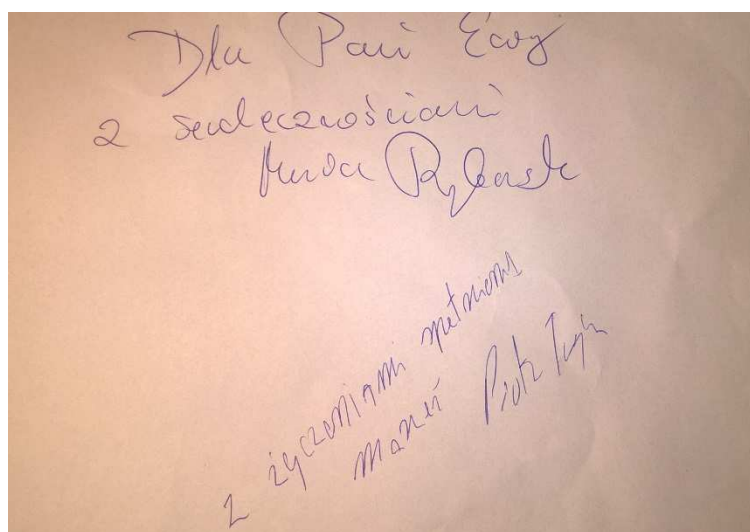 Dla Pani Ewy
z serdecznościami
z życzeniami spełnienia
marzeń Piotr